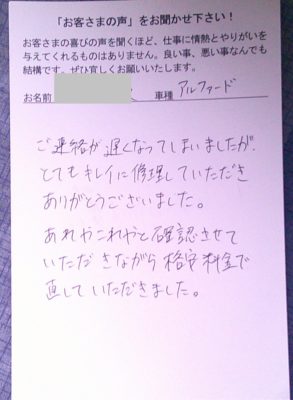 「お客さまの声」をお聞かせ下さい！
お客さまの喜びの声を聞くほど、仕事に情熱とやりがいを
与えてくれるものはありません。良い事、悪い事なんでも
結構です。ぜひ宜しくお願いいたします。
お名前 車種 アルファード
ご連絡が遅くなってしまいましたが、
とてもキレイに修理していただき
ありがとうございました。
あれやこれやと確認させて
いただきながら格安料金で
直していただきました。